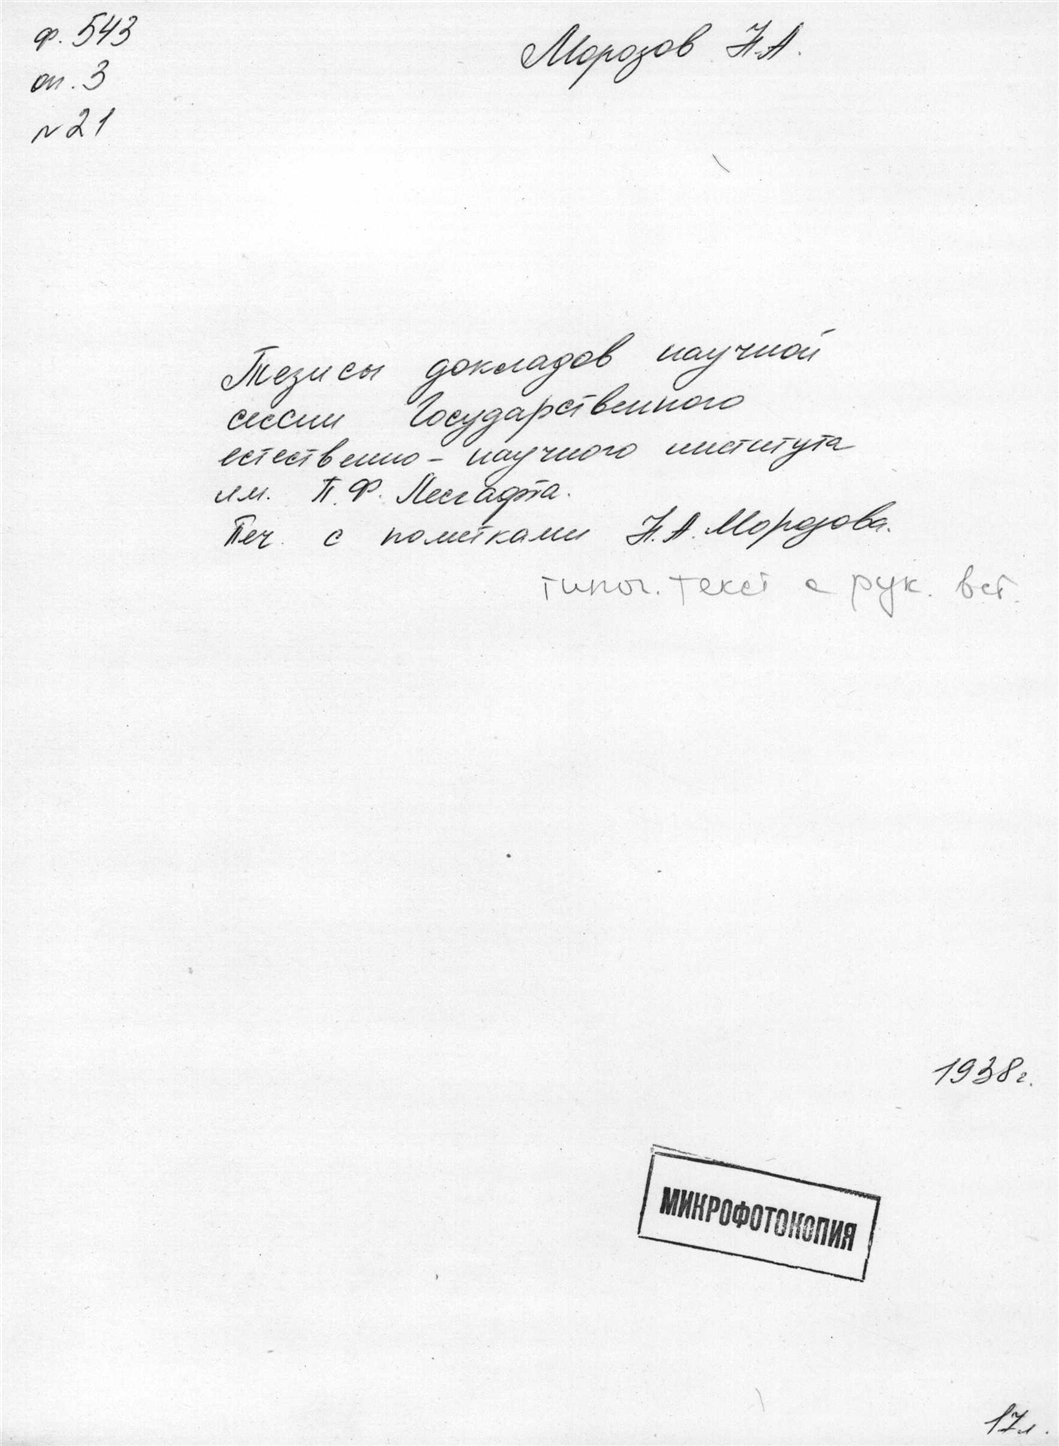 ф. 543
оп. 3
№21
Морозов Н.А.
Тезисы докладов научной
сессии Государственного
естественно-научного института
им. П.Ф. Лесгафта.
Печ. с пометками Н.А. Морозова.
типог. текст с рук. вст.
1938г.
МИКРОФОТОКОПИЯ
17л.